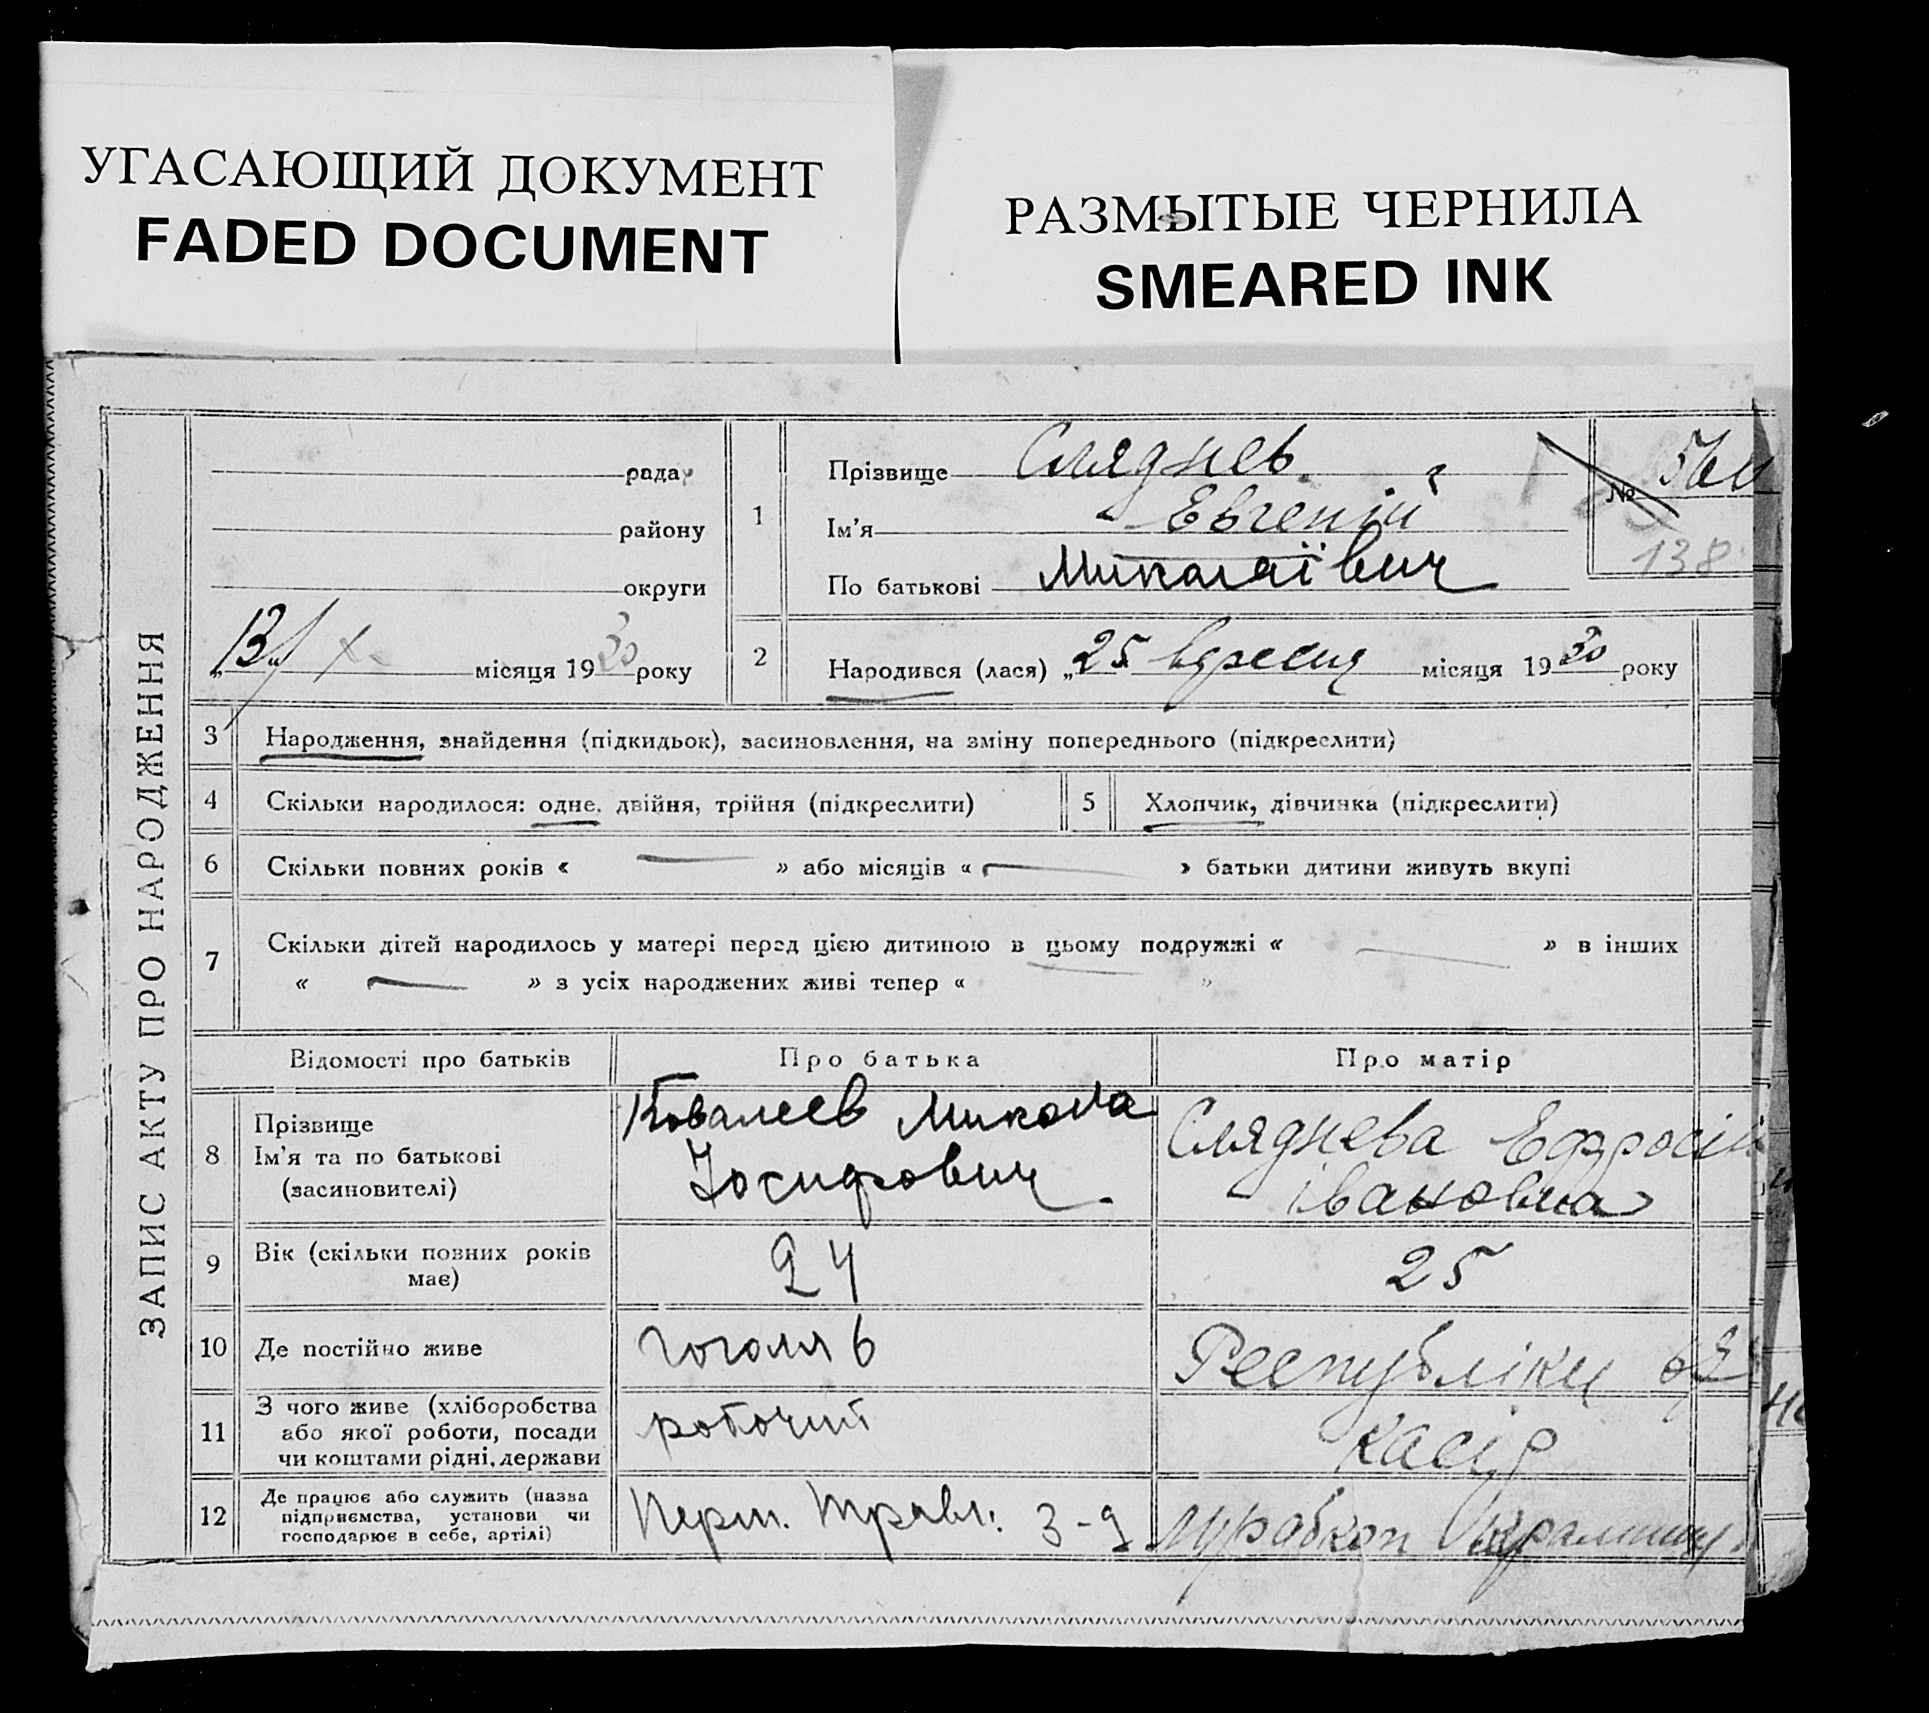 УГАСАЮЩИЙ ДОКУМЕНТ
FADED DOCUMENT
РАЗМЫТЫЕ ЧЕРНИЛА
SMEARED INK
ЗАПИС АКТУ ПРО НАРОДЖЕННЯ
рада
району
округи
13 X місяця 1930 року
1
Прізвище Сляднев
Ім'я Евгеній
По батькові Миколаївич
№
138
2
Народився (лася) „25 вересня місяця 1930 року
3 Народження, знайдення (підкидьок), засиновлення, на зміну попереднього (підкреслити)
4 Скільки народилося: одне, двійня, трійня (підкреслити)
5 Хлопчик, дівчинка (підкреслити)
6 Скільки повних років « — » або місяців « — » батьки дитини живуть вкупі
7 Скільки дітей народилось у матері перед цією дитиною в цьому подружжі « — » в інших
« — » з усіх народжених живі тепер « »
Відомості про батьків Про батька Про матір
8 Прізвище
Ім'я та по батькові
(засиновителі)
Ковалеев Микола
Йосифович
Сляднева Ефросін
Івановна
9 Вік (скільки повних років
має)
24
25
10 Де постійно живе
Гоголя 6
Республіки
11 З чого живе (хліборобства
або якої роботи, посади
чи коштами рідні, держави
робочий
касір
12 Де працює або служить (назва
підприємства, установи чи
господарює в себе, артілі)
Перш. Травл. З-д